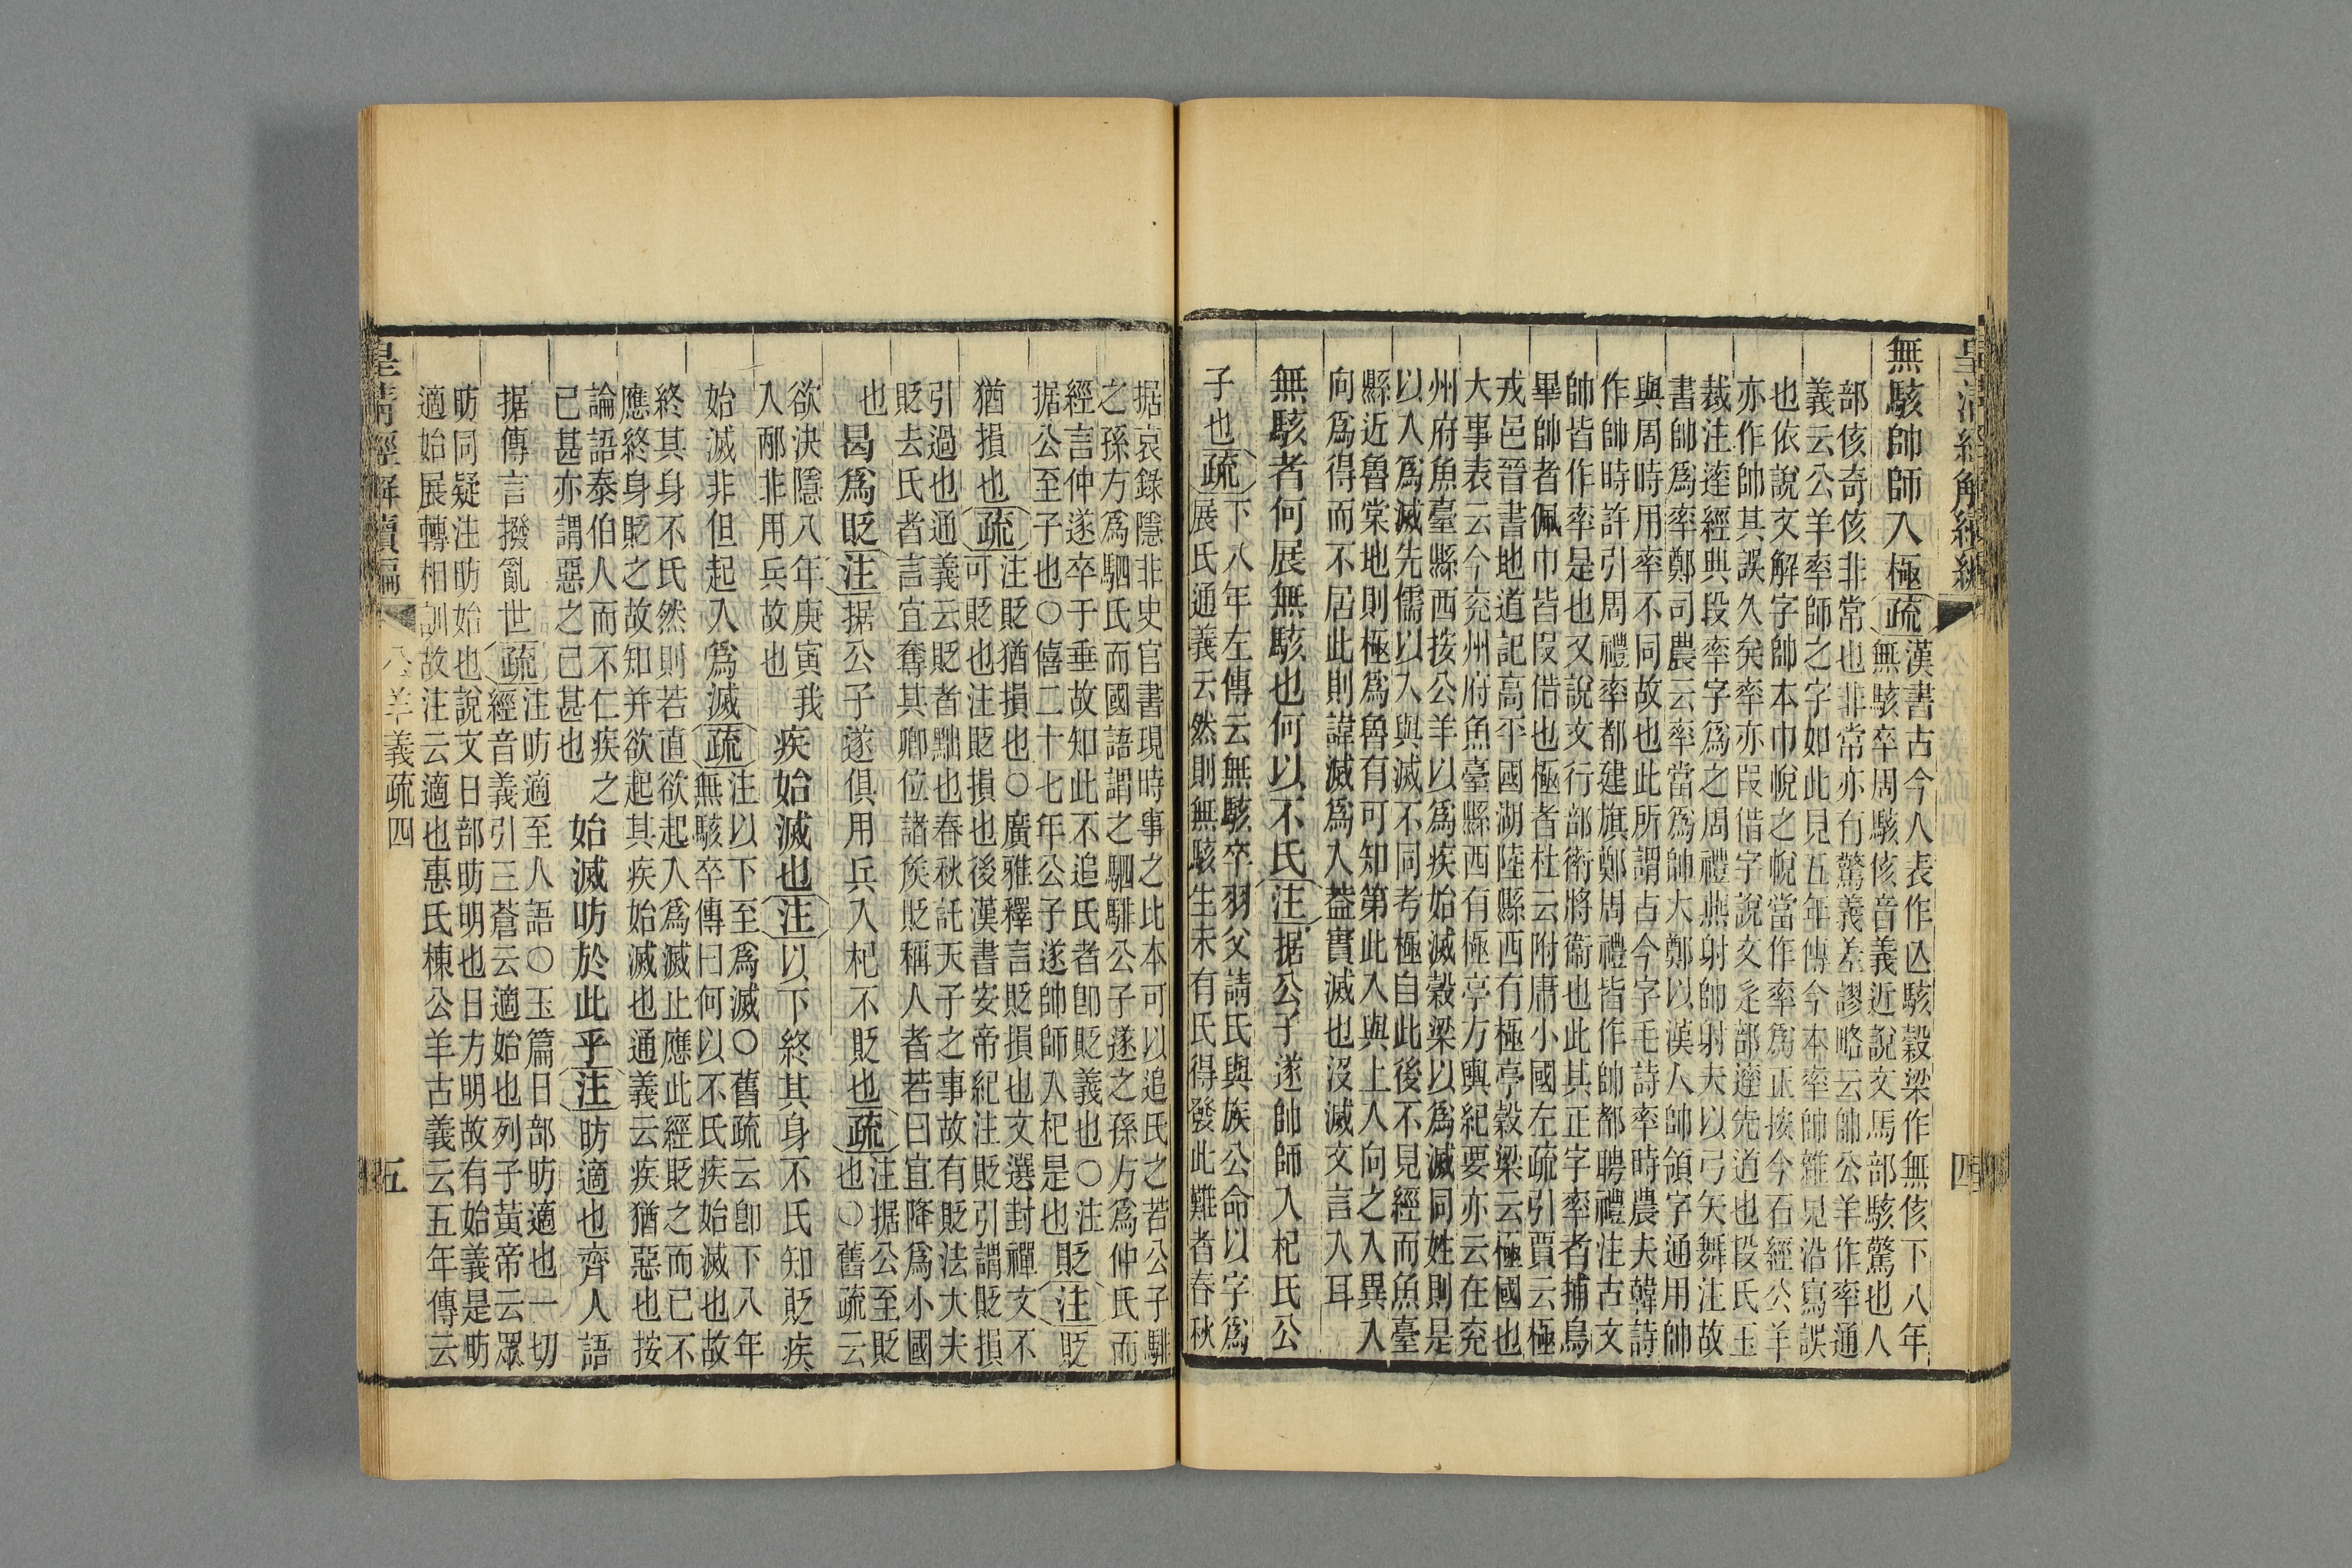 皇清經解續編
四
無駭帥師入極疏漢書古今人表作亾駭穀梁作無侅下八年
無駭卒周駭侅音義近說文馬部駭驚也人
部侅奇侅非常也非常亦有驚義差謬略云帥公羊作率通
義云公羊率師之字如此見五年傳今本率帥雜見浩寫誤
也依說文解字帥本巾帨之帨當作率爲正按今石經公羊
亦作帥其誤久矣率亦叚借字說文辵部䢦先道也段氏玉
裁注䢦經典段率字爲之周禮燕射帥射夫以弓矢舞注故
書帥爲率鄭司農云率當爲帥大鄭以漢人帥領字通用帥
與周時用率不同故也此所謂古今字毛詩率時農夫韓詩
作帥時許引周禮率都建旗鄭周禮皆作帥都聘禮注古文
帥皆作率是也又說文行部衛將衞也此其正字率者捕鳥
畢帥者佩巾皆叚借也極者杜云附庸小國左疏引賈云極
戎邑晉書地道記高平國湖陸縣西有極亭穀梁云極國也
大事表云今兖州府魚臺縣西有極亭方輿紀要亦云在兖
州府魚臺縣西按公羊以爲疾始滅穀梁以爲滅同姓則是
以入爲滅先儒以入與滅不同考極自此後不見經而魚臺
縣近魯棠地則極爲魯有可知第此入與上人向之入異入
向爲得而不居此則諱滅爲入葢實滅也沒滅文言入耳
無駭者何展無駭也何以不氏注据公子遂帥師入杞氏公
子也疏下八年左傳云無駭卒羽父請氏與族公命以字爲
展氏通義云然則無駭生未有氏得發此難者春秋
据哀錄隱非史官書現時事之比本可以追氏之若公子騑
之孫方爲駟氏而國語謂之駟騑公子遂之孫方爲仲氏而
經言仲遂卒于垂故知此不追氏者卽貶義也○注
据公至子也○僖二十七年公子遂帥師入杞是也貶注貶
猶損也疏注貶猶損也○廣雅釋言貶損也文選封禪文不
可貶也注貶損也後漢書安帝紀注貶引謂貶損
引過也通義云貶者黜也春秋託天子之事故有貶法大夫
貶去氏者言宜奪其卿位諸矦貶稱人者若曰宜降爲小國
也曷爲貶注据公子遂俱用兵入杞不貶也疏注据公至貶
也○舊疏云
欲決隱八年庚寅我
入邴非用兵故也疾始滅也注以下終其身不氏知貶疾
始滅非但起入爲滅疏注以下至爲滅○舊疏云卽下八年
無駭卒傳曰何以不氏疾始滅也故
終其身不氏然則若直欲起入爲滅止應此經貶之而已不
應終身貶之故知并欲起其疾始滅也通義云疾猶惡也按
論語泰伯人而不仁疾之
已甚亦謂惡之已甚也始滅昉於此乎注昉適也齊人語
据傳言撥亂世疏注昉適至人語○玉篇日部昉適也一切
經音義引三蒼云適始也列子黃帝云眾
昉同疑注昉始也說文日部昉明也日方明故有始義是昉
適始展轉相訓故注云適也惠氏棟公羊古義云五年傳云
皇清經解續編
公羊義疏四
五